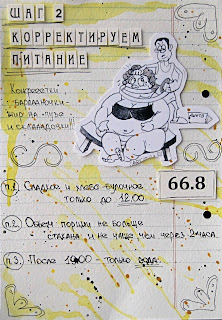 ШАГ 2
КОРРЕКТИРУЕМ
ПИТАНИЕ
жир на пузе
и
66.8
п.1. Сладкое и хлебо-булочное
только до 12:00.
п.2. Объем порции не больше
стакана и не чаще чем через 2 часа.
п.3. После 19:00 только вода.